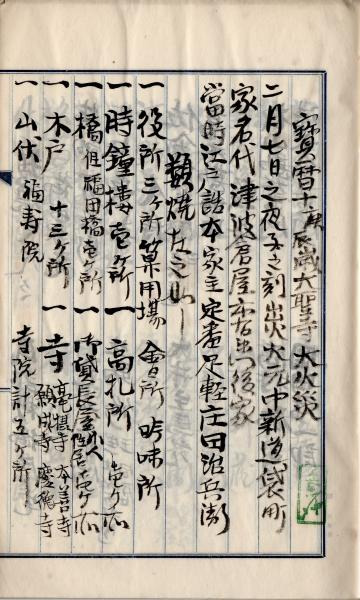 寶暦十庚辰歳大聖寺大火災
二月七日之夜子之刻出火大元中新道袋町
家名代津波倉屋赤右衛門後家
當時江戸詰本家主定番足軽庄田治兵衛
類焼左之如し
一役所三ヶ所算用場 會所 吟味所
一時鐘樓壱ヶ所 一高札所 壱ヶ所
一橋但福田橋壱ヶ所 一御貸長屋
一木戸 十三ヶ所 一寺 本善寺 願成寺 慶徳寺
一山伏 福寿院 寺院計五ヶ所